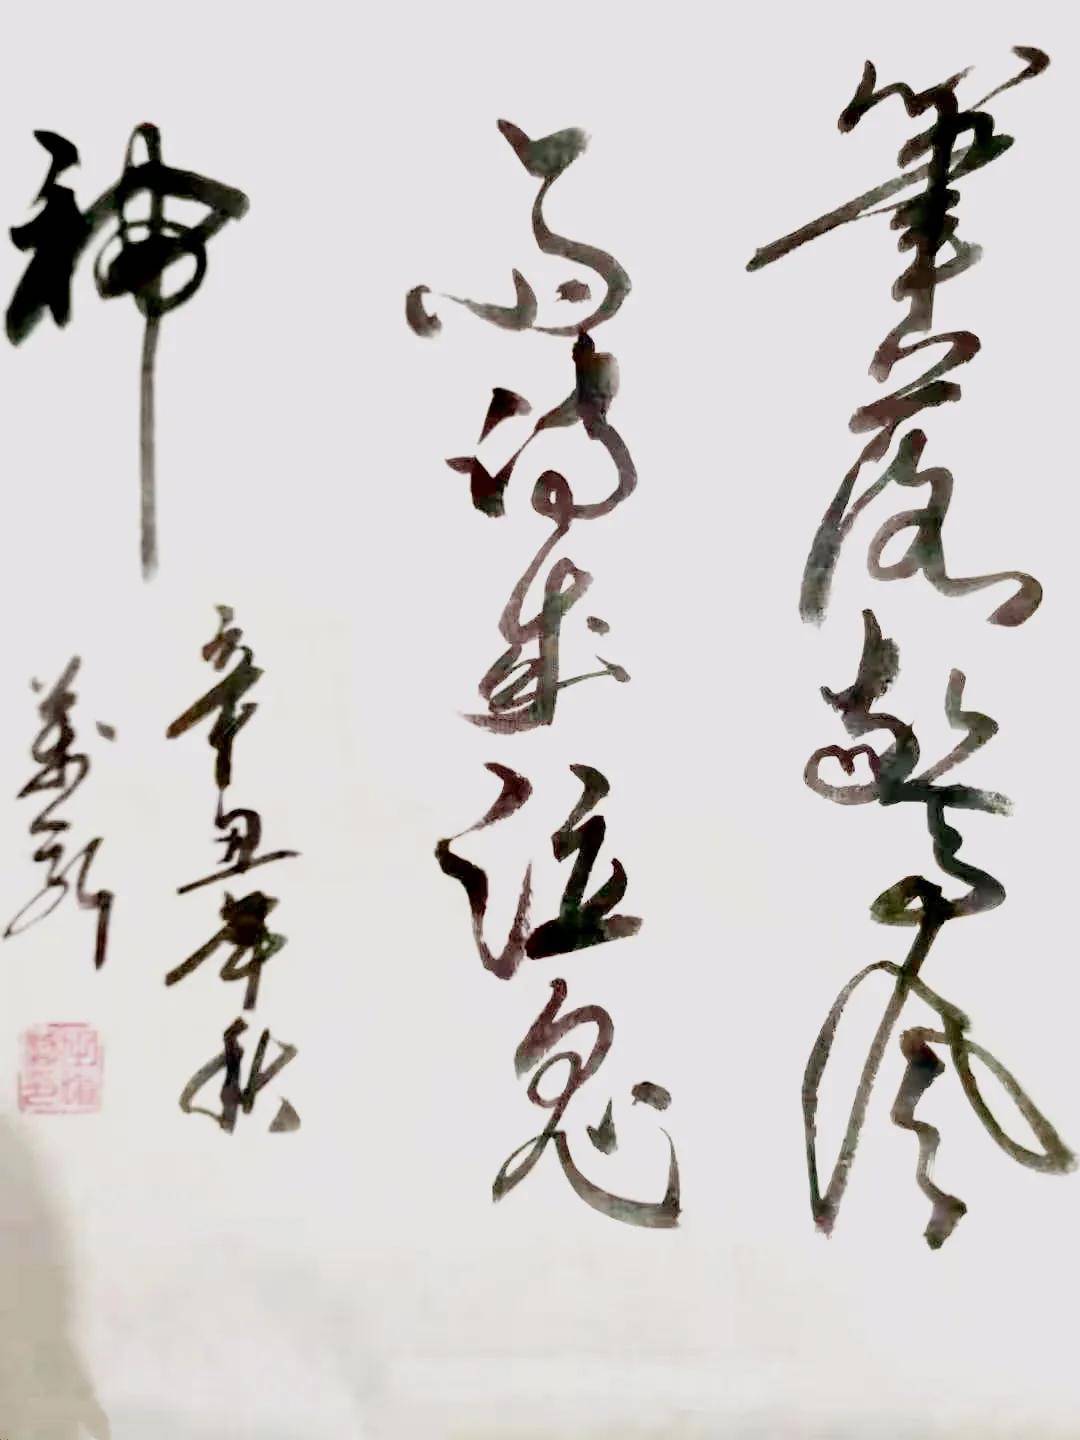 筆落驚風
雨詩成泣鬼
神
辛丑年秋
萬